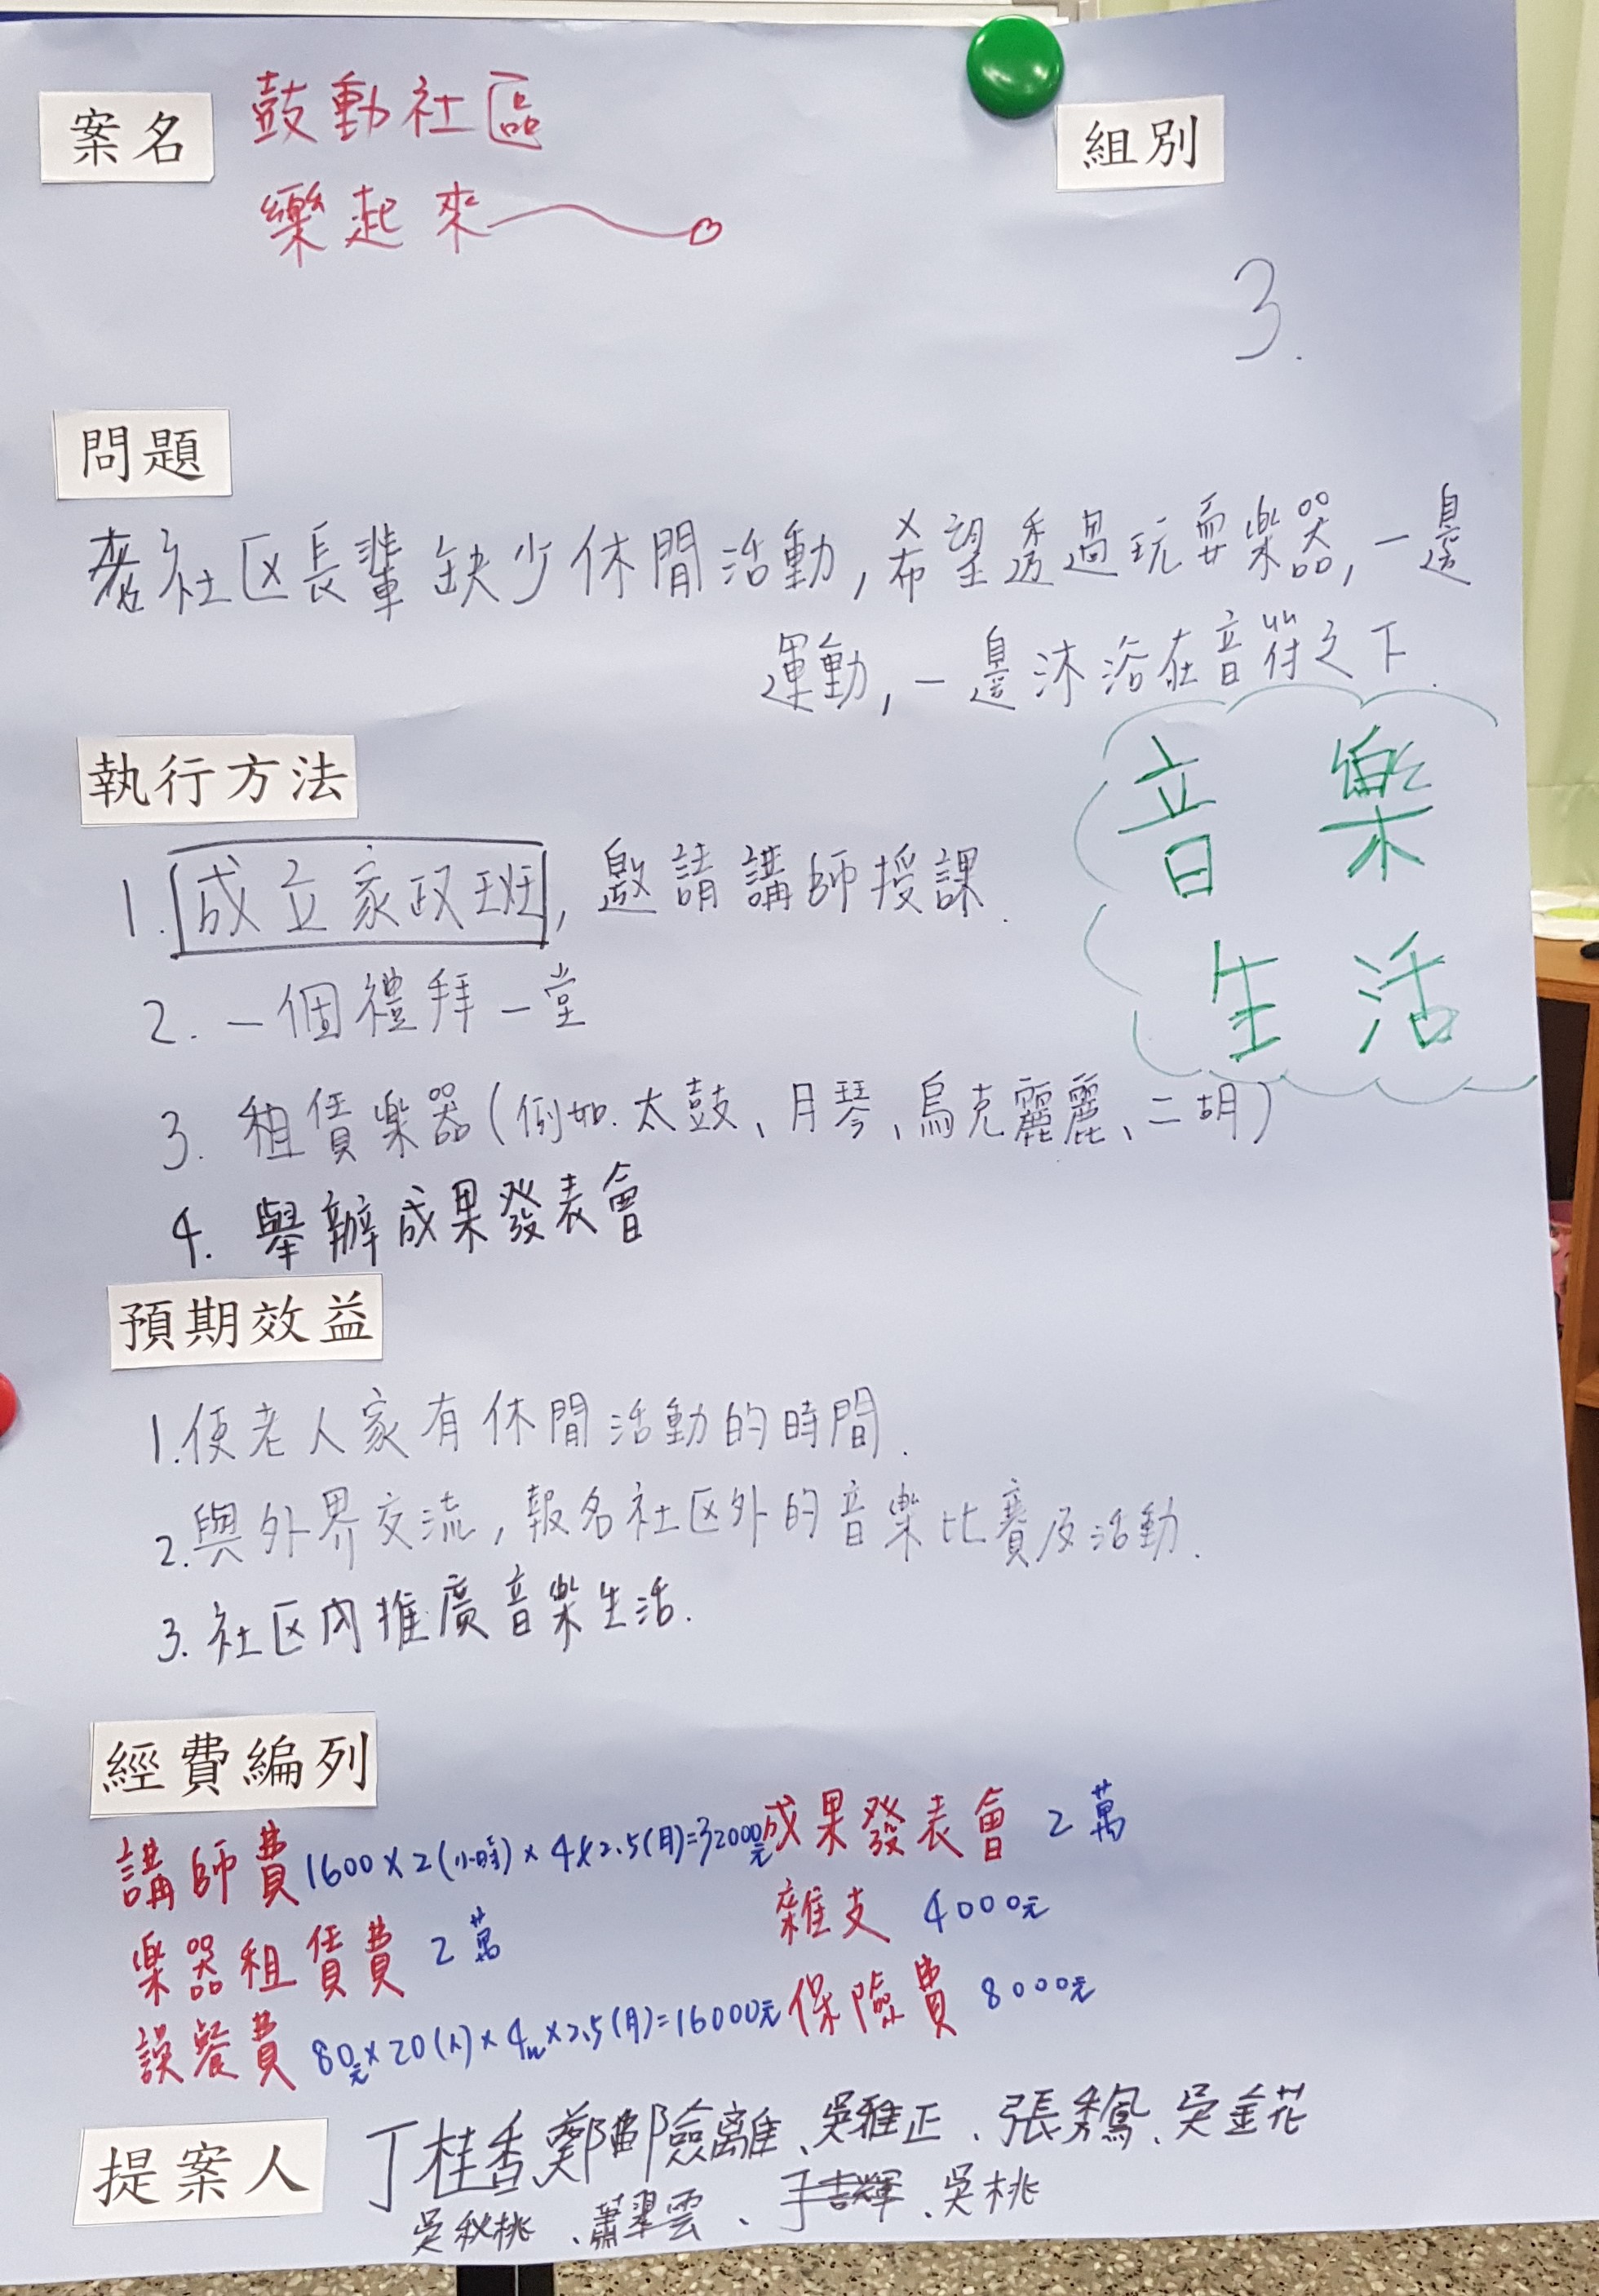 案名 鼓動社區
樂起來
組別
3.
問題
老社区長輩缺少休閒活動,希望透過玩耍樂器,一邊
運動,一邊沐浴在音符之下.
執行方法
音樂
生活
1.成立家政班,邀請講師授課.
2.一個禮拜一堂
3.租賃樂器(例如.太鼓、月琴、烏克麗麗、二胡)
4.舉辦成果發表會
預期效益
1.使老人家有休閒活動的時間.
2.與外界交流,報名社区外的音樂比賽及活動.
3.社区內推廣音樂生活.
經費編列
講師費 1600×2(小時)×4×2.5(月)=32000元 成果發表會 2萬
樂器租賃費 2萬 雜支 4000元
誤餐費 80元×20(人)×4×2.5(月)=16000元 保險費 8000元
提案人 丁桂香 鄭 離、吳雅正、張秀鳳、吳金花
吳秋桃、蕭翠雲、吉輝、吳桃